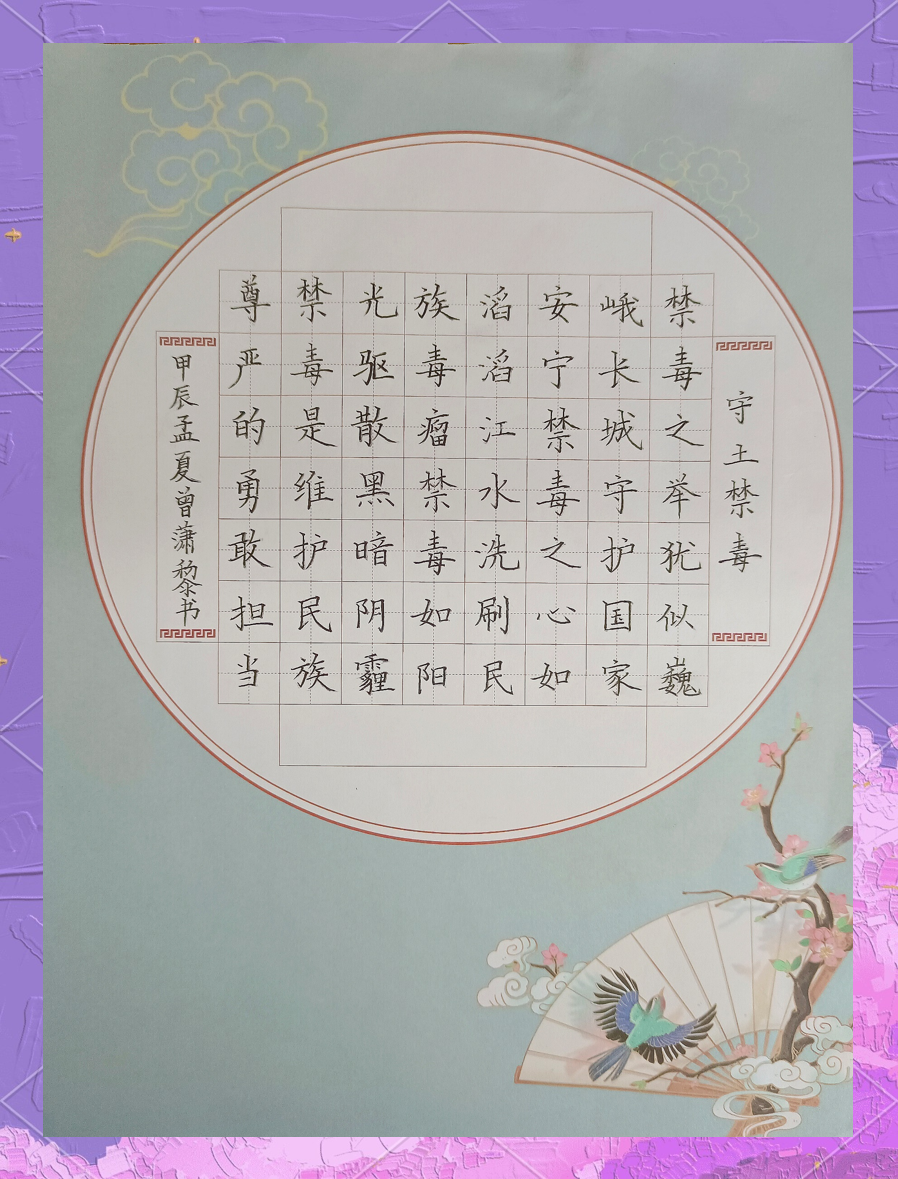 守土禁毒
禁毒之举犹似巍
峨长城守护国家
安宁禁毒之心如
滔滔江水洗刷民
族毒瘤禁毒如阳
光驱散黑暗阴霾
禁毒是维护民族
尊严的勇敢担当
甲辰孟夏曾潇黎书